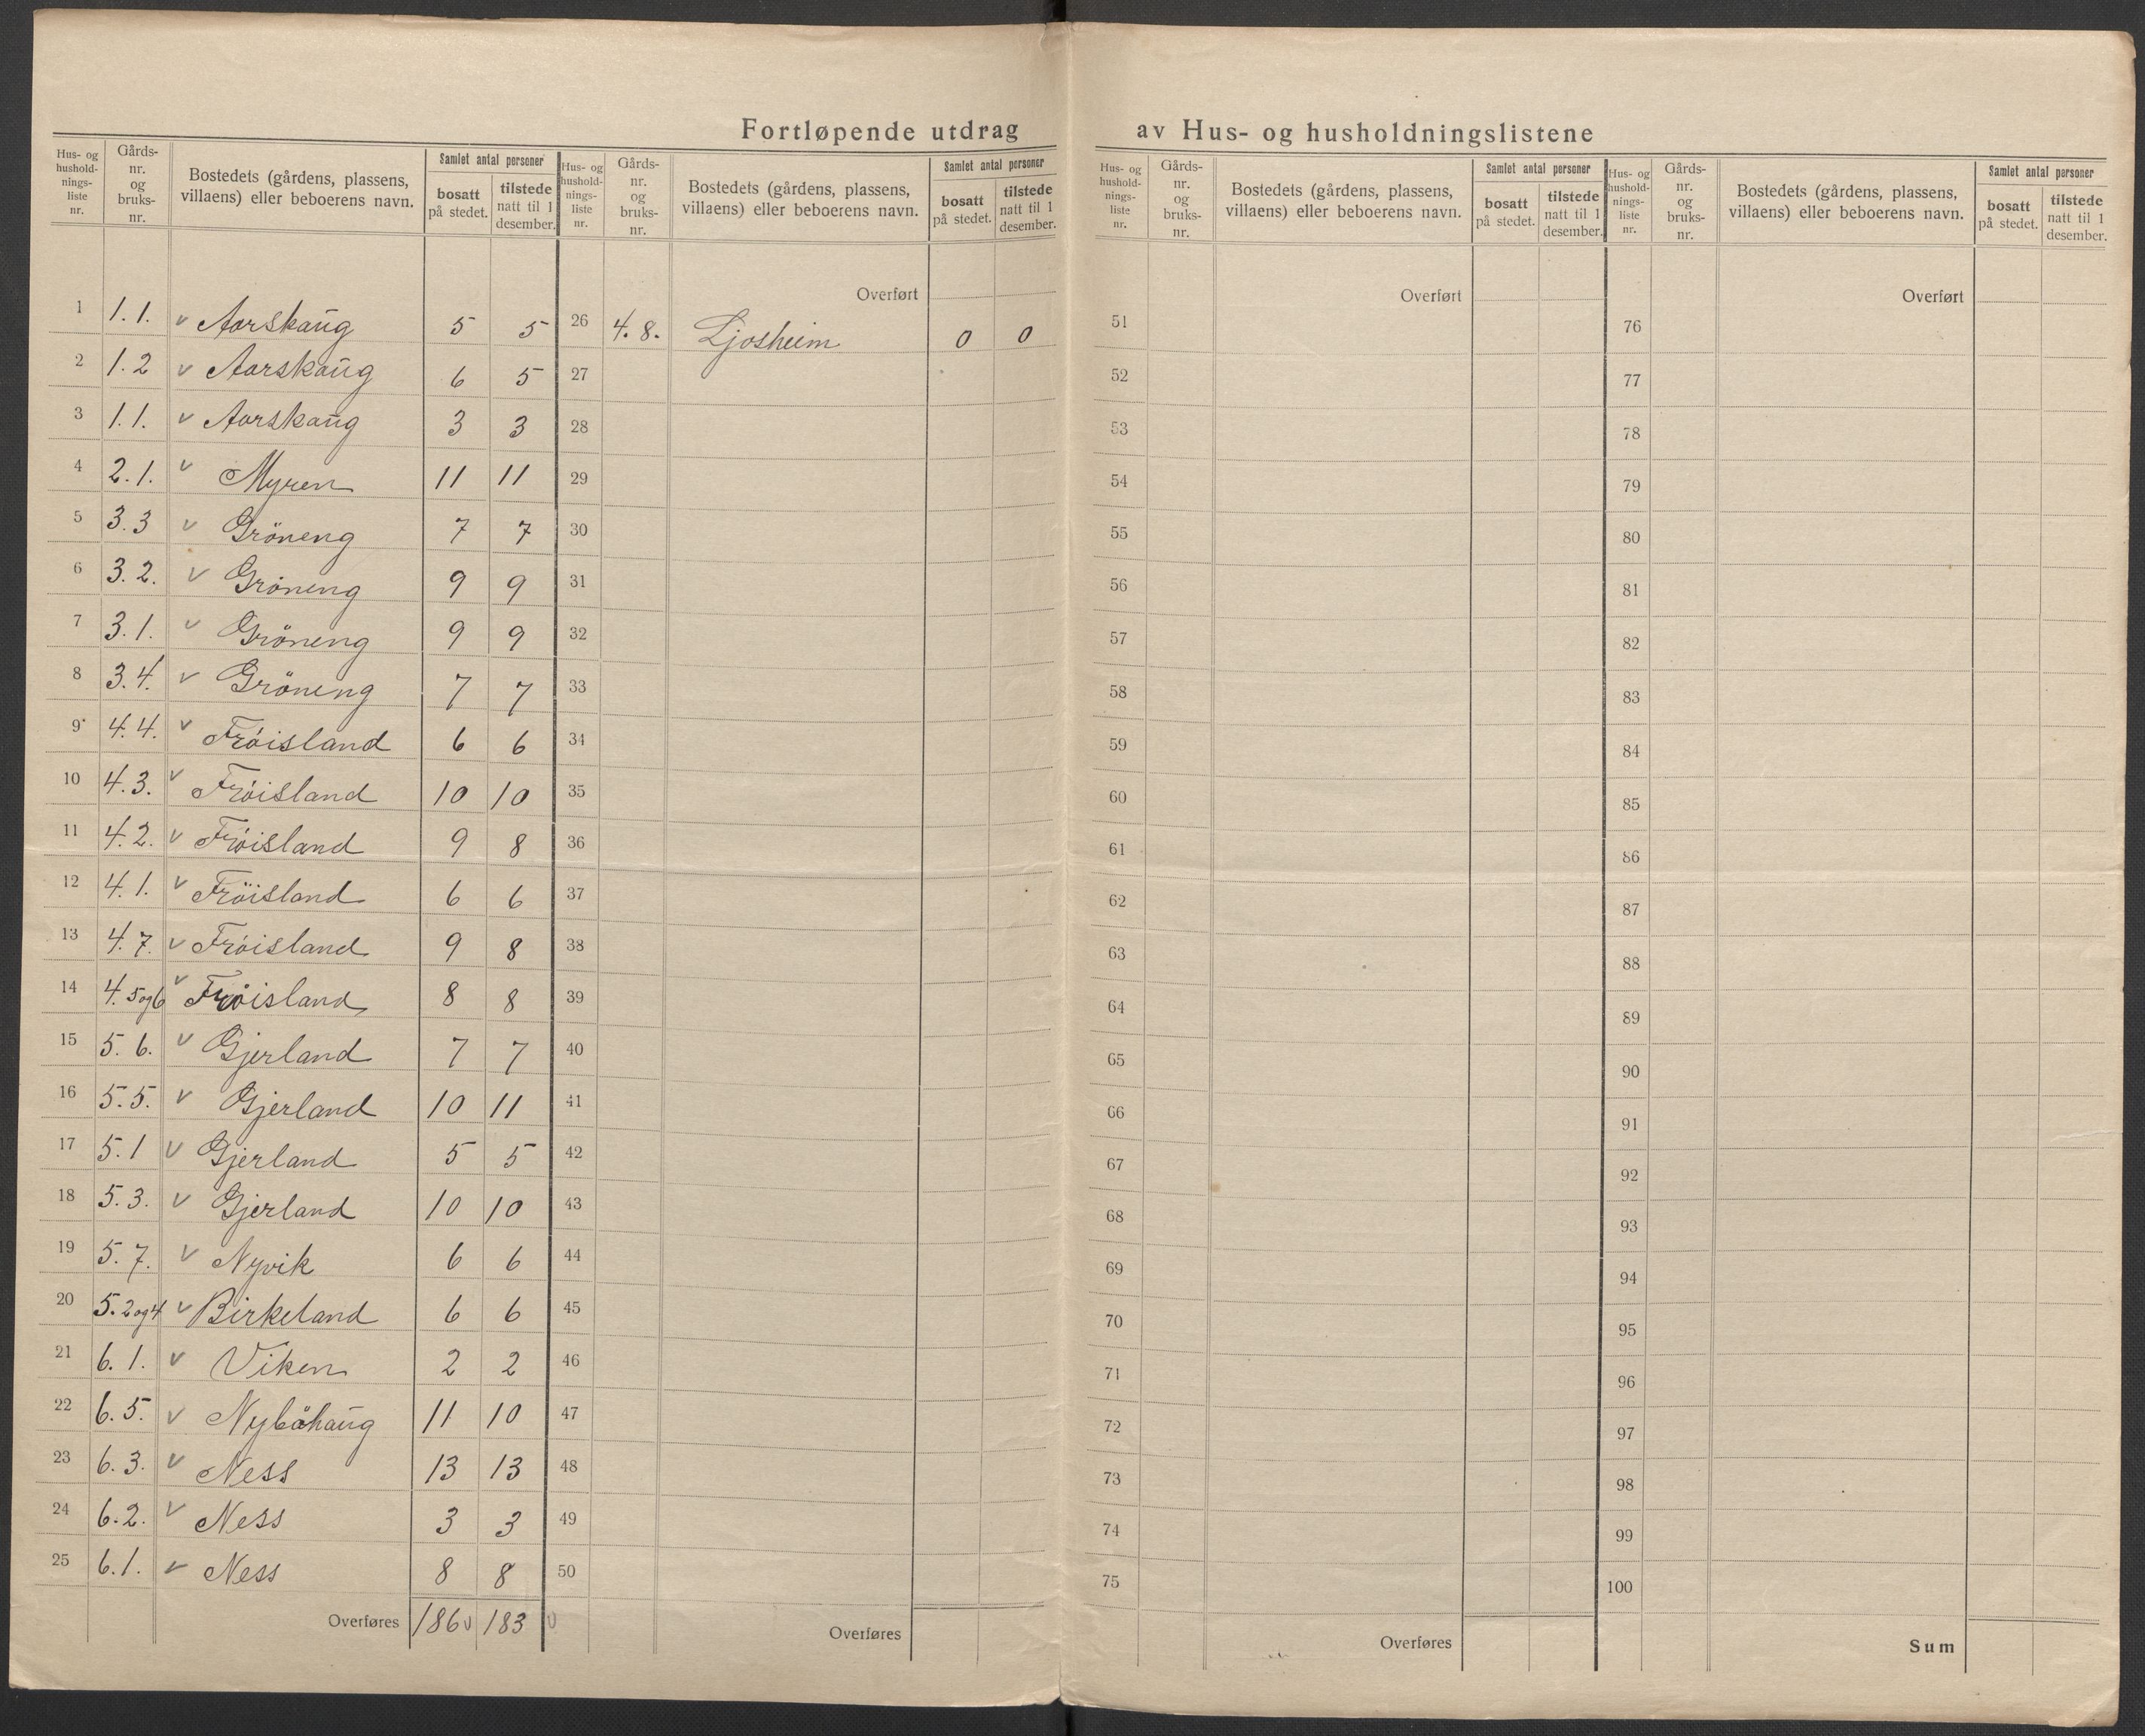 Fortløpende utdrag av Hus- og husholdningslistene
Hus- og husholdnings-liste nr. Gårds-nr. og bruks-nr. Bostedets (gårdens, plassens, villaens) eller beboerens navn. Samlet antal personer bosatt på stedet. tilstede natt til 1 desember.
1 1.1. v Aarskaug 5 5
2 1.2 v Aarskaug 6 5
3 1.1. v Aarskaug 3 3
4 2.1. v Myren 11 11
5 3.3 v Gröneng 7 7
6 3.2. v Gröneng 9 9
7 3.1. v Gröneng 9 9
8 3.4. v Gröneng 7 7
9 4.4. v Fröisland 6 6
10 4.3. v Fröisland 10 10
11 4.2. v Fröisland 9 8
12 4.1. v Fröisland 6 6
13 4.7. v Fröisland 9 8
14 4.5og6 v Fröisland 8 8
15 5.6. v Gjerland 7 7
16 5.5. v Gjerland 10 11
17 5.1 v Gjerland 5 5
18 5.3. v Gjerland 10 10
19 5.7. v Nyvik 6 6
20 5.2og4 v Birkeland 6 6
21 6.1. v Viken 2 2
22 6.5. v Nyböhaug 11 10
23 6.3. v Ness 13 13
24 6.2. v Ness 3 3
25 6.1. v Ness 8 8
Overføres 186 v 183 v
Hus- og husholdnings-liste nr. Gårds-nr. og bruks-nr. Bostedets (gårdens, plassens, villaens) eller beboerens navn. Samlet antal personer bosatt på stedet. tilstede natt til 1 desember.
Overført
26 4.8. Ljosheim 0 0
27
28
29
30
31
32
33
34
35
36
37
38
39
40
41
42
43
44
45
46
47
48
49
50
Overføres
Hus- og husholdnings-liste nr. Gårds-nr. og bruks-nr. Bostedets (gårdens, plassens, villaens) eller beboerens navn. Samlet antal personer bosatt på stedet. tilstede natt til 1 desember.
Overført
51
52
53
54
55
56
57
58
59
60
61
62
63
64
65
66
67
68
69
70
71
72
73
74
75
Overføres
Hus- og husholdnings-liste nr. Gårds-nr. og bruks-nr. Bostedets (gårdens, plassens, villaens) eller beboerens navn. Samlet antal personer bosatt på stedet. tilstede natt til 1 desember.
Overført
76
77
78
79
80
81
82
83
84
85
86
87
88
89
90
91
92
93
94
95
96
97
98
99
100
Sum